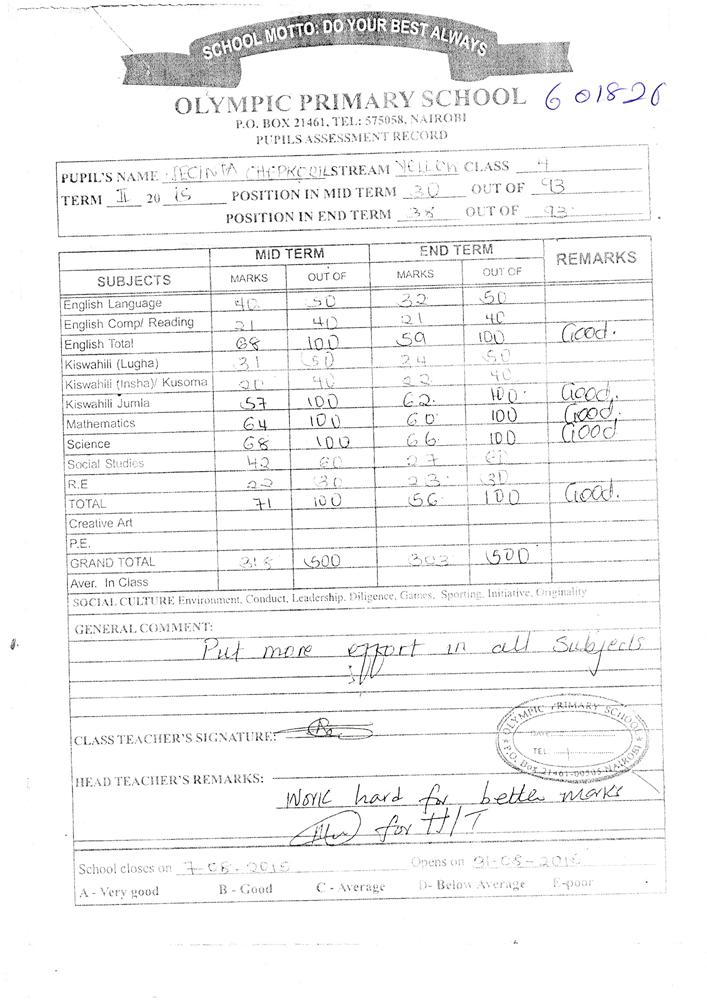 SCHOOL MOTTO: DO YOUR BEST ALWAYS
OLYMPIC PRIMARY SCHOOL 601826
P.O. BOX 21461, TEL: 575058, NAIROBI
PUPILS ASSESSMENT RECORD
PUPIL'S NAME JECINTA STREAM YELLOW CLASS 4
TERM II 20 15 POSITION IN MID TERM 30 OUT OF 93
POSITION IN END TERM 38 OUT OF 93
MID TERM END TERM REMARKS
SUBJECTS MARKS OUT OF MARKS OUT OF
English Language 40 50 32 50
English Comp/ Reading 21 40 21 40
English Total 68 100 59 100 Good.
Kiswahili (Lugha) 31 50 34 50
Kiswahili (Insha)/ Kusoma 20 40 22 40
Kiswahili Jumla 57 100 62 100 Good.
Mathematics 64 100 60 100 Good.
Science 68 100 66 100 Good
Social Studies 42 60 27 60
R.E 22 30 23 30
TOTAL 71 100 56 100 Good.
Creative Art
P.E.
GRAND TOTAL 500 303 500
Aver. In Class
SOCIAL CULTURE Environment, Conduct, Leadership, Diligence, Games, Sporting, Initiative, Originality
GENERAL COMMENT:
Put more effort in all subjects
CLASS TEACHER'S SIGNATURE:
OLYMPIC PRIMARY SCHOOL
DATE
TEL:
P.O. Box 21461-00505 NAIROBI
HEAD TEACHER'S REMARKS:
Work hard for better marks
for H/T
School closes on 7-08-2015 Opens on 31-08-2015
A - Very good B - Good C - Average D- Below Average E-poor